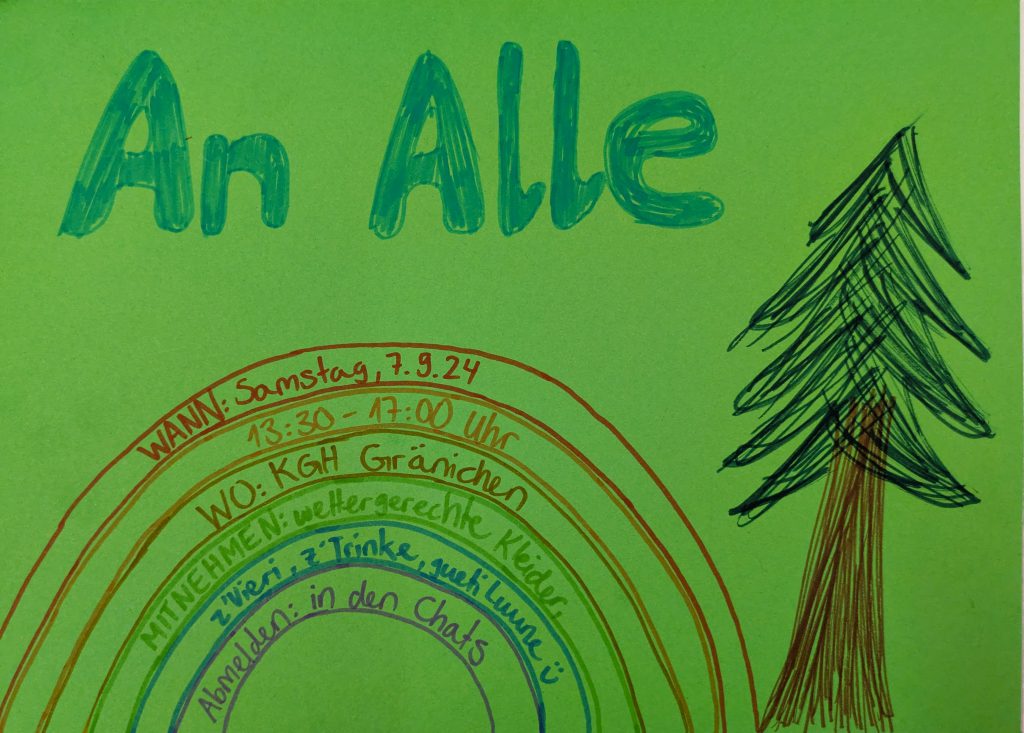 An Alle
WANN: Samstag, 7.9.24
13:30 - 17:00 Uhr
WO: KGH Gränichen
MITNEHMEN: wettergerechte Kleider,
z'Vieri, z'Trinke, gueti Luune ü
Abmelden: in den Chats